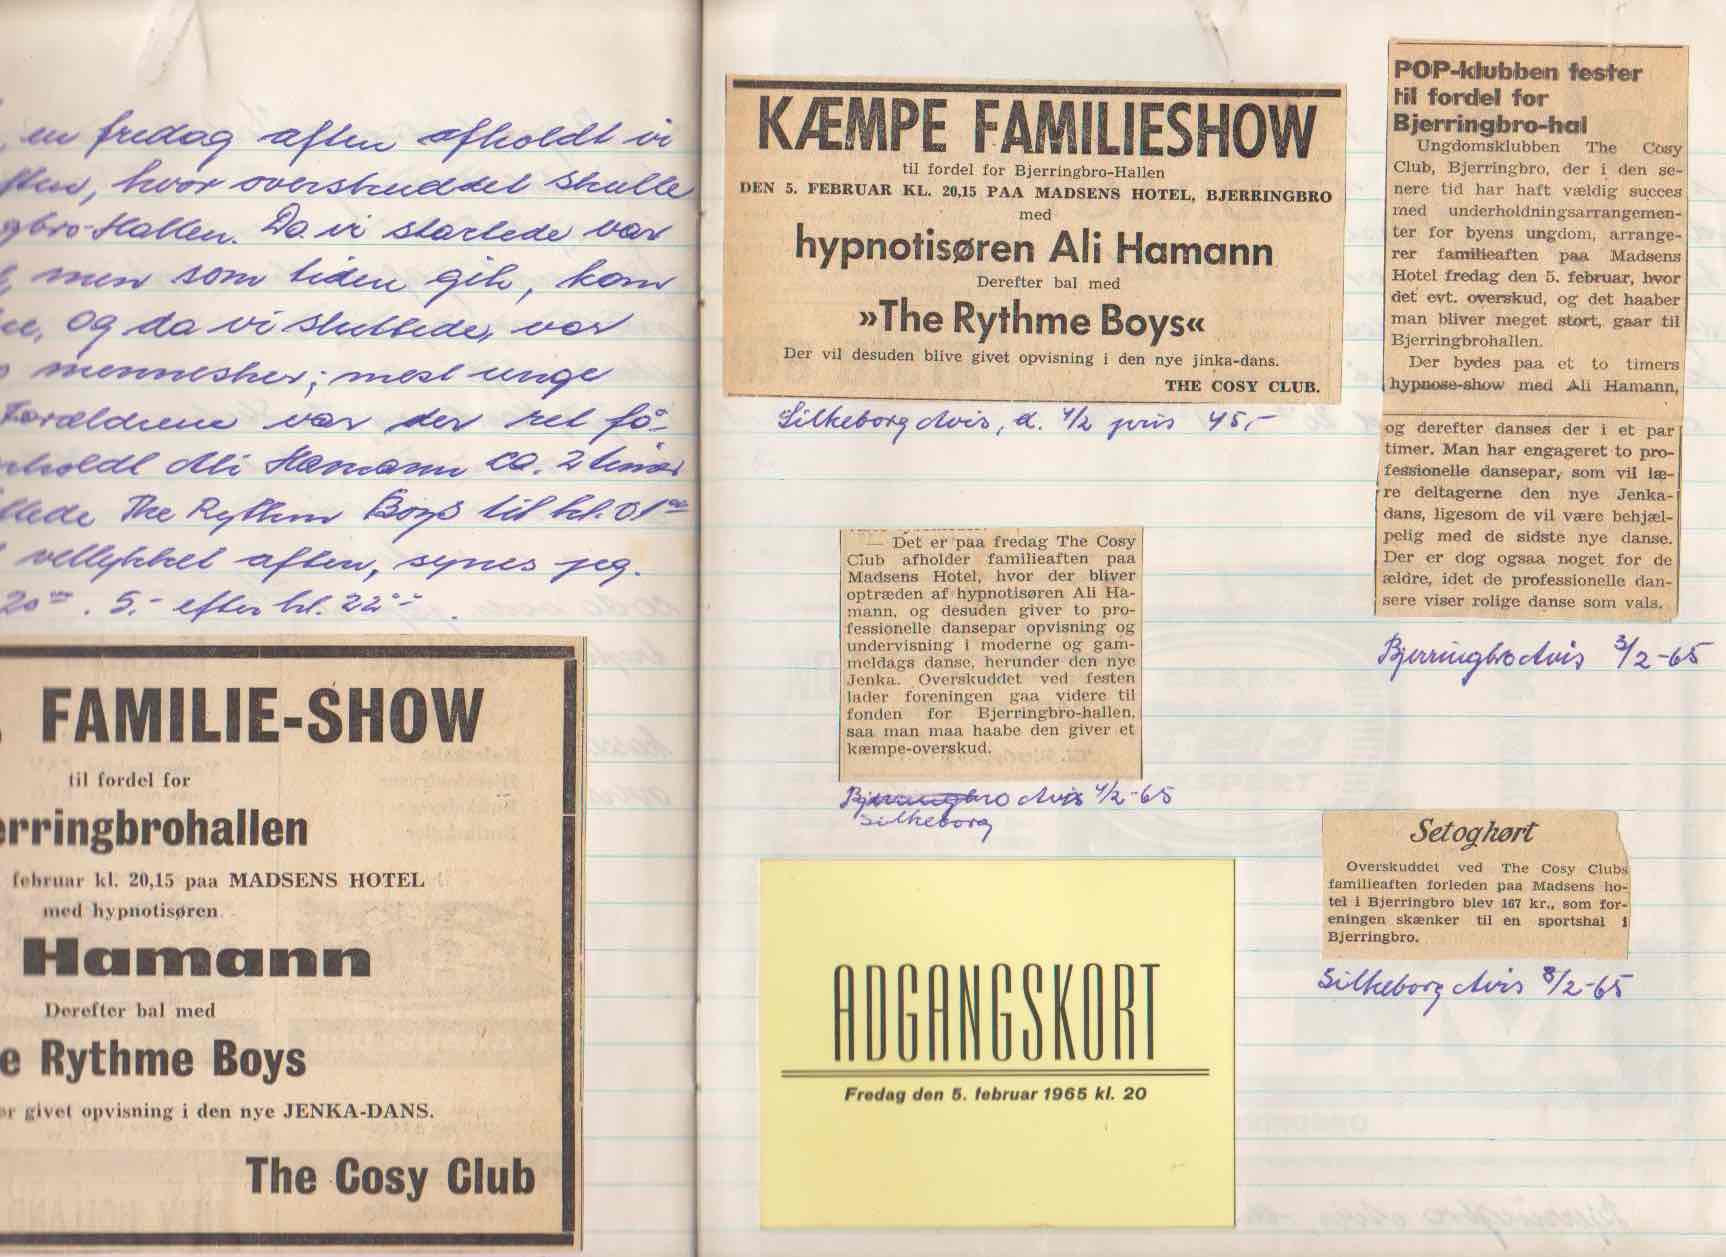 en fredag aften afholdt vi
ften, hvor overskuddet skulle
gbro-Hallen. Da vi startede var
men som tiden gik, kom
og da vi sluttede, var
mennesker; mest unge
Forældrene var der ret få
holdt Ali Hamann ca. 2 timer
llede The Rythm Boys til kl. 01⁰⁰
vellykket aften, synes jeg.
20⁰⁰. 5.- efter kl. 22⁰⁰.
FAMILIE-SHOW
til fordel for
erringbrohallen
februar kl. 20,15 paa MADSENS HOTEL
med hypnotisøren
Hamann
Derefter bal med
e Rythme Boys
er givet opvisning i den nye JENKA-DANS.
The Cosy Club
KÆMPE FAMILIESHOW
til fordel for Bjerringbro-Hallen
DEN 5. FEBRUAR KL. 20,15 PAA MADSENS HOTEL, BJERRINGBRO
med
hypnotisøren Ali Hamann
Derefter bal med
»The Rythme Boys«
Der vil desuden blive givet opvisning i den nye jinka-dans.
THE COSY CLUB.
Silkeborg Avis, d. 4/2 pris 45,-
— Det er paa fredag The Cosy
Club afholder familieaften paa
Madsens Hotel, hvor der bliver
optræden af hypnotisøren Ali Ha-
mann, og desuden giver to pro-
fessionelle dansepar opvisning og
undervisning i moderne og gam-
meldags danse, herunder den nye
Jenka. Overskuddet ved festen
lader foreningen gaa videre til
fonden for Bjerringbro-hallen,
saa man maa haabe den giver et
kæmpe-overskud.
Bjerringbro Avis 4/2-65
Silkeborg
ADGANGSKORT
Fredag den 5. februar 1965 kl. 20
POP-klubben fester
til fordel for
Bjerringbro-hal
Ungdomsklubben The Cosy
Club, Bjerringbro, der i den se-
nere tid har haft vældig succes
med underholdningsarrangemen-
ter for byens ungdom, arrange-
rer familieaften paa Madsens
Hotel fredag den 5. februar, hvor
det evt. overskud, og det haaber
man bliver meget stort, gaar til
Bjerringbrohallen.
Der bydes paa et to timers
hypnose-show med Ali Hamann,
og derefter danses der i et par
timer. Man har engageret to pro-
fessionelle dansepar, som vil læ-
re deltagerne den nye Jenka-
dans, ligesom de vil være behjæl-
pelig med de sidste nye danse.
Der er dog ogsaa noget for de
ældre, idet de professionelle dan-
sere viser rolige danse som vals.
Bjerringbro Avis 3/2-65
Set og hørt
Overskuddet ved The Cosy Clubs
familieaften forleden paa Madsens ho-
tel i Bjerringbro blev 167 kr., som for-
eningen skænker til en sportshal i
Bjerringbro.
Silkeborg Avis 8/2-65